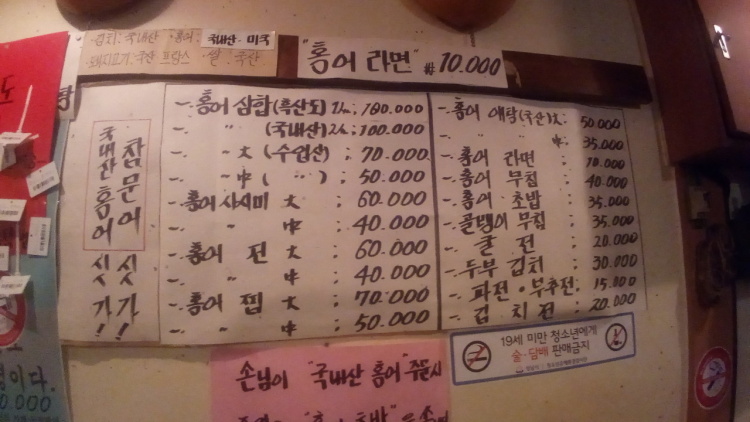 김치: 국내산 · 홍어: 국내산 · 미국
돼지고기: 국산 프랑스 · 쌀: 국산
"홍어 라면" ₩10.000
국내산 홍어 싯가!
참문어 싯가!
-. 홍어 삼합(흑산도) : 180.000
-. 〃 (국내산) : 100.000
-. 〃 大 (수입산) : 70.000
-. 〃 中 ( 〃 ) : 50.000
-. 홍어 사시미 大 : 60.000
-. 〃 中 : 40.000
-. 홍어 전 大 : 60.000
-. 〃 中 : 40.000
-. 홍어 찜 大 : 70.000
-. 〃 中 : 50.000
-. 홍어 애탕(국산)大: 50.000
-. 〃 中 : 35.000
-. 홍어 라면 : 10.000
-. 홍어 무침 : 40.000
-. 홍어 초밥 : 35.000
-. 골뱅이 무침 : 35.000
-. 굴 전 : 20.000
-. 두부 김치 : 30.000
-. 파전 · 부추전: 15.000
-. 김 치전 : 20.000
19세 미만 청소년에게
술·담배 판매금지
손님이 "국내산 홍어" 주문시
이다.
0.000